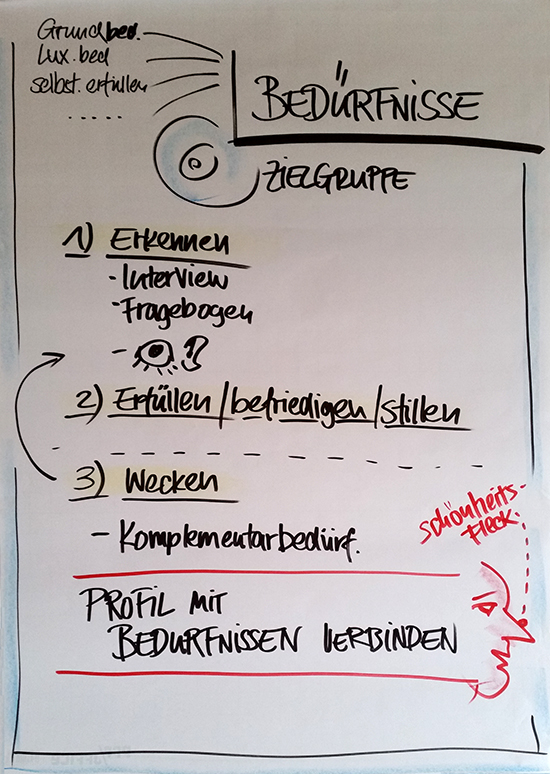 Grundbed.
Lux. bed
selbst. erfüllen
.....
BEDÜRFNISSE
ZIELGRUPPE
1) Erkennen
- Interview
- Fragebogen
-
2) Erfüllen/befriedigen/stillen
3) Wecken
- Komplementarbedürf.
schönheits-
fleck.
PROFIL MIT
BEDÜRFNISSEN VERBINDEN